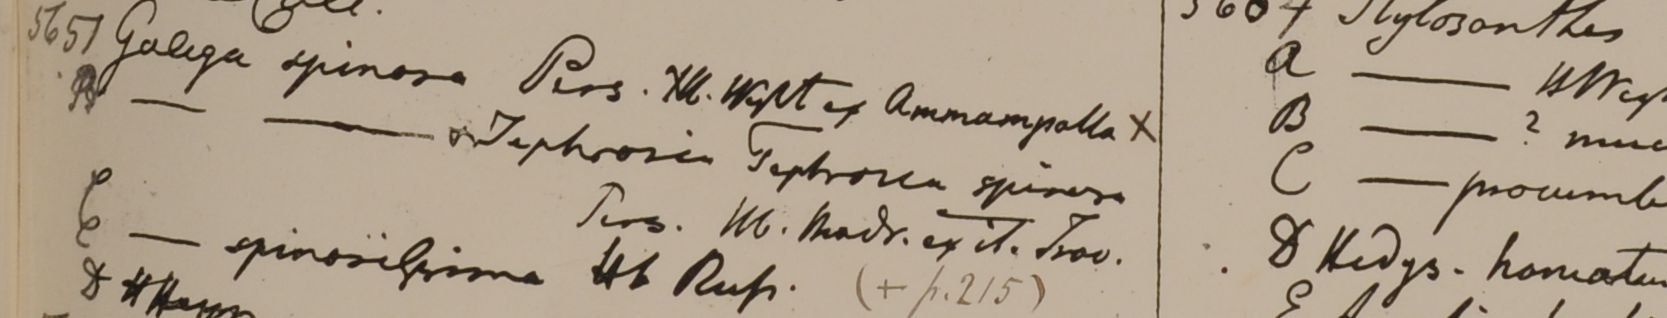 5651 Galega spinosa Pers. Hb. Wight ex Ammampolla X
B — — Tephrosia Tephrosia spinosa
Pers. Hb. Madr. ex it. Trav.
C — spinosissima Hb Russ. (+ p. 215)
D H Heyn
5604 Stylosanthes
A — H Wigh
B — ? muc
C — procumb
D Hedys. hamatum
E